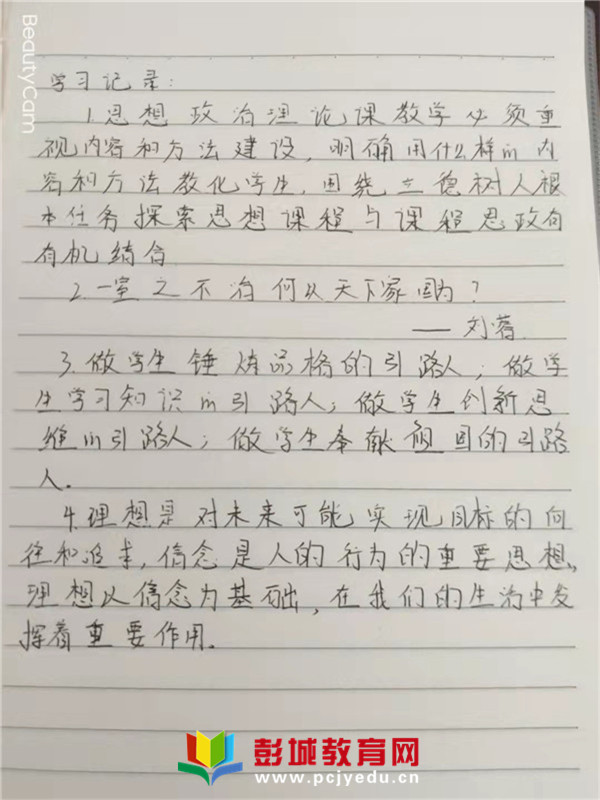 BeautyCam
学习记录:
1.思想政治理论课教学必须重
视内容和方法建设,明确用什么样的内
容和方法教化学生,围绕立德树人根
本任务探索思想课程与课程思政的
有机结合
2.一室之不治何以天下家国为?
——刘蓉.
3.做学生锤炼品格的引路人;做学
生学习知识的引路人;做学生创新思
维的引路人;做学生奉献祖国的引路
人.
4.理想是对未来可能实现目标的向
往和追求,信念是人的行为的重要思想,
理想以信念为基础,在我们的生活中发
挥着重要作用.
彭城教育网
www.pcjyedu.cn